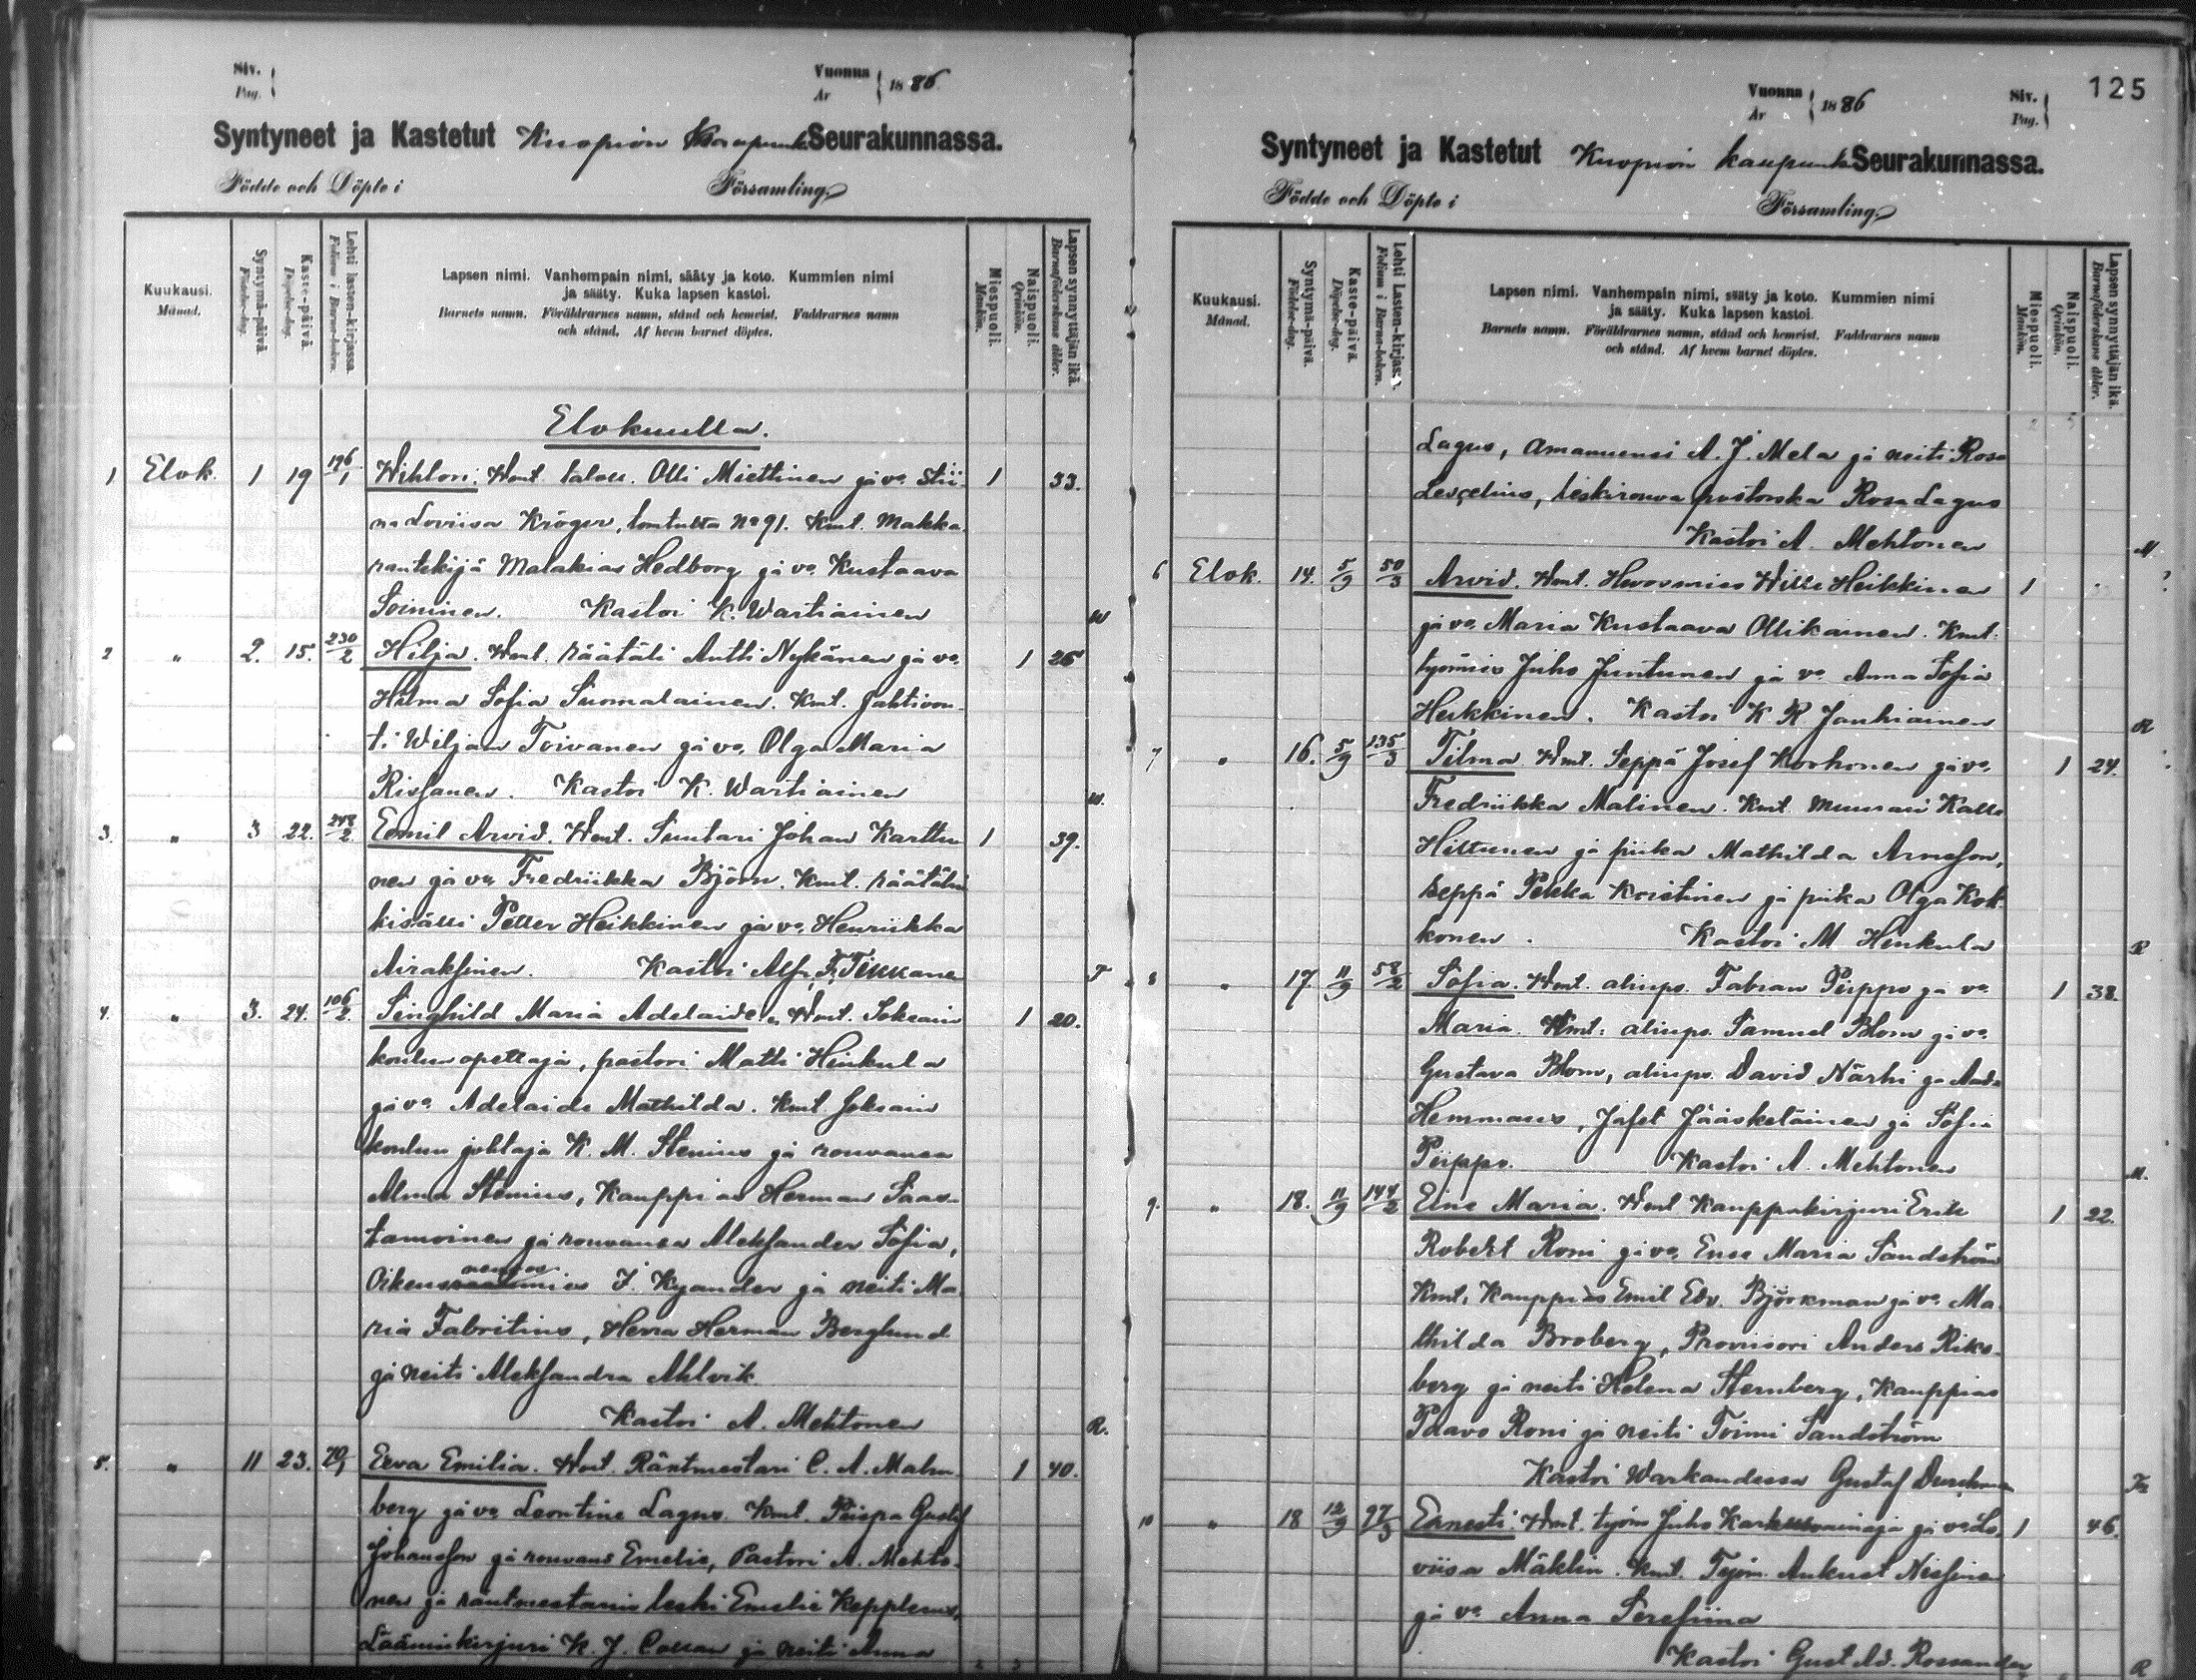 Siv.
Pag.
Vuonna
År
1886.
Syntyneet ja Kastetut Kuopion Kaupunki Seurakunnassa.
Födde och Döpte i
Församling.
Kuukausi.
Månad.
Syntymä-päivä.
Födelse-dag.
Kaste-päivä.
Döpelse-dag.
Lehti lasten-kirjassa.
Folium i Barna-boken.
Lapsen nimi. Vanhempain nimi, sääty ja koto. Kummien nimi
ja sääty. Kuka lapsen kastoi.
Barnets namn. Föräldrarnes namn, stånd och hemvist. Faddrarnes namn
och stånd. Af hvem barnet döptes.
Miespuoli.
Mankön.
Naispuoli.
Qvinkön.
Lapsen synnyttäjän ikä.
Barnaföderskans ålder.
Elokuulla.
1 Elok. 1 19 196/1 Wihtori. Wmt. taloll. Olli Miettinen ja vo Stii- 1 33.
na Loviisa Kröger, tontulta No 91. Kmt. Makka-
rantekijä Malakias Hedborg ja vo. Kustaava
Soininen. Kastoi K. Wartiainen W
2 " 2. 15. 230/2 Hilja. Wmt. räätäli Antti Nykänen ja vo. 1 26
Hilma Sofia Suomalainen. Kmt. Jahtivou-
ti Wiljam Toivanen ja vo. Olga Maria
Rissanen. Kastoi K. Wartiainen W.
3. " 3 22. 248/2. Eemil Arvid. Wmt. Suutari Johan Karttu- 1 39.
nen ja vo Fredriikka Björn. Kmt. räätälin
kisälli Petter Heikkinen ja vo. Henriikka
Airaksinen. Kastoi Alfr. F. Tikkanen T
4. " 3. 24. 106/2. Singhild Maria Adelaide. Wmt. Sokeain 1 20.
koulun opettaja, pastori Matti Hinkula
ja vo Adelaide Mathilda. Kmt. Sokeain
koulun johtaja K. M. Stenius ja rouvansa
Alma Stenius, Kauppias Herman Saas-
tamoinen ja rouvansa Aleksander Sofia,
Oikeusneuvosmies J. Kyander ja neiti Ma-
ria Fabritius, Herra Herman Berglund
ja neiti Aleksandra Ahlvik.
Kastoi A. Mehtonen R.
5. " 11 23. 70/1 Eeva Emilia. Wmt. Räntmestari C. A. Malm- 1 40.
berg ja vo Leontine Lagus. Kmt. Piispa Gustaf
Johansson ja rouvans Emelie, Pastori A. Mehto-
nen ja räntmestarin leski Emelie Kepplerus,
Lääninkirjuri K. J. Collan ja neiti Anna
125
Vuonna
År
1886
Siv.
Pag.
Syntyneet ja Kastetut Kuopion kaupunki Seurakunnassa.
Födde och Döpte i
Församling.
Kuukausi.
Månad.
Syntymä-päivä.
Födelse-dag.
Kaste-päivä.
Döpelse-dag.
Lehti Lasten-kirjassa.
Folium i Barna-boken.
Lapsen nimi. Vanhempain nimi, sääty ja koto. Kummien nimi
ja sääty. Kuka lapsen kastoi.
Barnets namn. Föräldrarnes namn, stånd och hemvist. Faddrarnes namn
och stånd. Af hvem barnet döptes.
Miespuoli.
Mankön.
Naispuoli.
Qvinkön.
Lapsen synnyttäjän ikä.
Barnaföderskans ålder.
Lagus, Amanuensi A. J. Mela ja neiti Rosa
Lescelius, leskirouva pastorska Rosa Lagus
Kastoi A. Mehtonen M.
6 Elok. 14. 5/9 50/3 Arvid. Wmt. Huonemies Wille Heikkinen 1
ja vo. Maria Kustaava Ollikainen. Kmt.
työmies Juho Juntunen ja vo Anna Sofia
Heikkinen. Kastoi K R Jauhiainen R
7 " 16. 5/9 135/3 Tilma Wmt. Seppä Josef Korhonen ja vo. 1 24.
Fredriikka Malinen. Kmt. Muurari Kalle
Hiltunen ja piika Mathilda Arnesson,
Seppä Pekka Koistinen ja piika Olga Kok-
konen. Kastoi M Hinkula R
8 " 17. 11/9 58/2 Sofia. Wmt. aliups. Fabian Piippo ja vo. 1 38.
Maria. Kmt: aliups. Samuel Blom ja vo.
Gustava Blom, aliups. David Närhi ja
Hemmans, Jafet Jääskeläinen ja Sofia
Piippo. Kastoi A. Mehtonen M.
9. " 18. 11/9 144/2 Eine Maria. Wmt Kauppakirjuri Erik 1 22.
Robert Roni ja vo. Ense Maria Sandström
Kmt. Kauppias Emil Edv. Björkman ja vo. Ma-
thilda Broberg, Proviisori Anders Riks-
berg ja neiti Helena Sternberg, Kauppias
Paavo Roni ja neiti Toimi Sandström
Kastoi Warkaudessa Gustaf
10 " 18 12/9 97/3 Ernesti. Wmt. työm Juho ja vo Lo- 1 46.
viisa Mäklin. Kmt. Työm. Aukust Nissinen
ja vo Anna Serafiina
Kastoi Gust. Ad. Rossander R